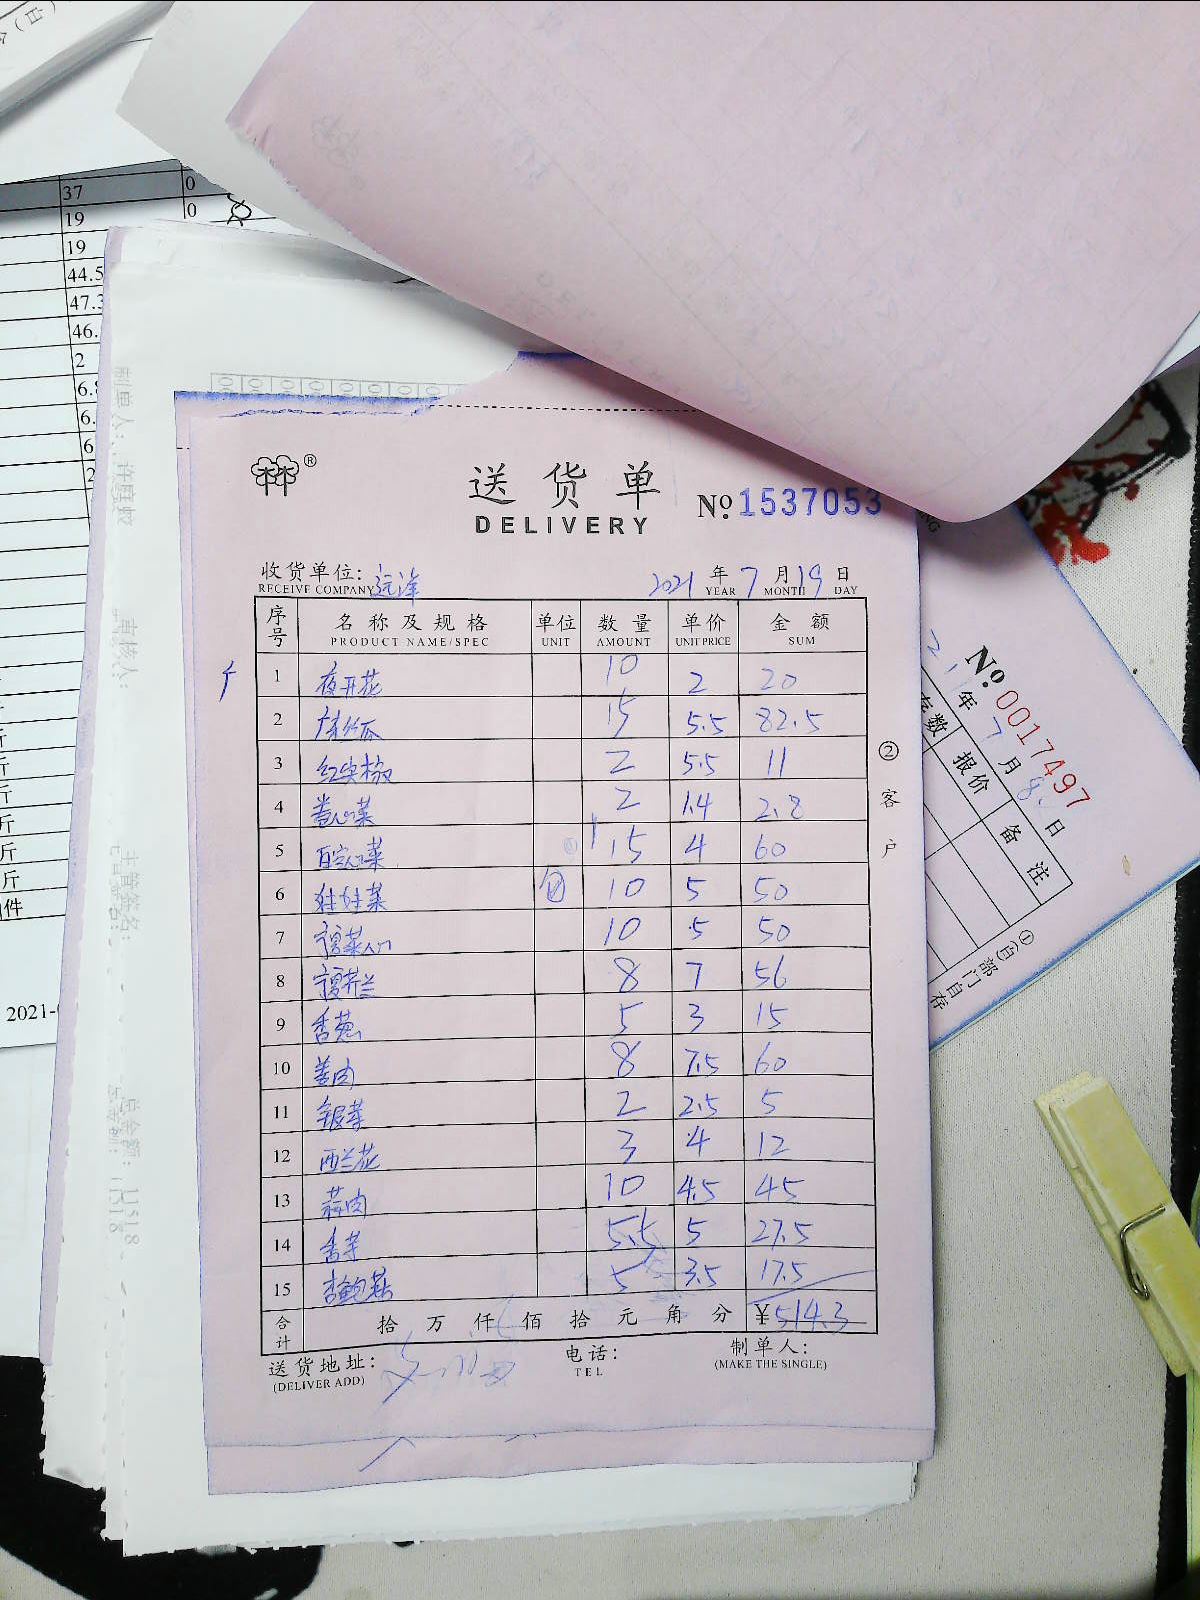 37 0
19 0
19
44.5
47.3
46.
2
2021-
送货单
DELIVERY
№ 1537053
收货单位: 远洋 2021 年 7 月 19 日
RECEIVE COMPANY YEAR MONTH DAY
序号 名称及规格 单位 数量 单价 金额
PRODUCT NAME/SPEC UNIT AMOUNT UNIT PRICE SUM
1 夜开花 10 2 20
2 15 5.5 82.5
3 红尖椒 2 5.5 11
4 卷心菜 2 1.4 2.8
5 15 4 60
6 娃娃菜 10 5 50
7 10 5 50
8 8 7 56
9 香葱 5 3 15
10 姜肉 8 7.5 60
11 银芽 2 2.5 5
12 西兰花 3 4 12
13 蒜肉 10 4.5 45
14 香芋 5.5 5 27.5
15 杏鲍菇 5 3.5 17.5
合计 拾 万 仟 佰 拾 元 角 分 ¥514.3
送货地址: 电话: 制单人:
(DELIVER ADD) TEL (MAKE THE SINGLE)
② 客户
№ 0017497
年 7 月 8 日
报价 备注
①(白部门自存
斤
斤
件